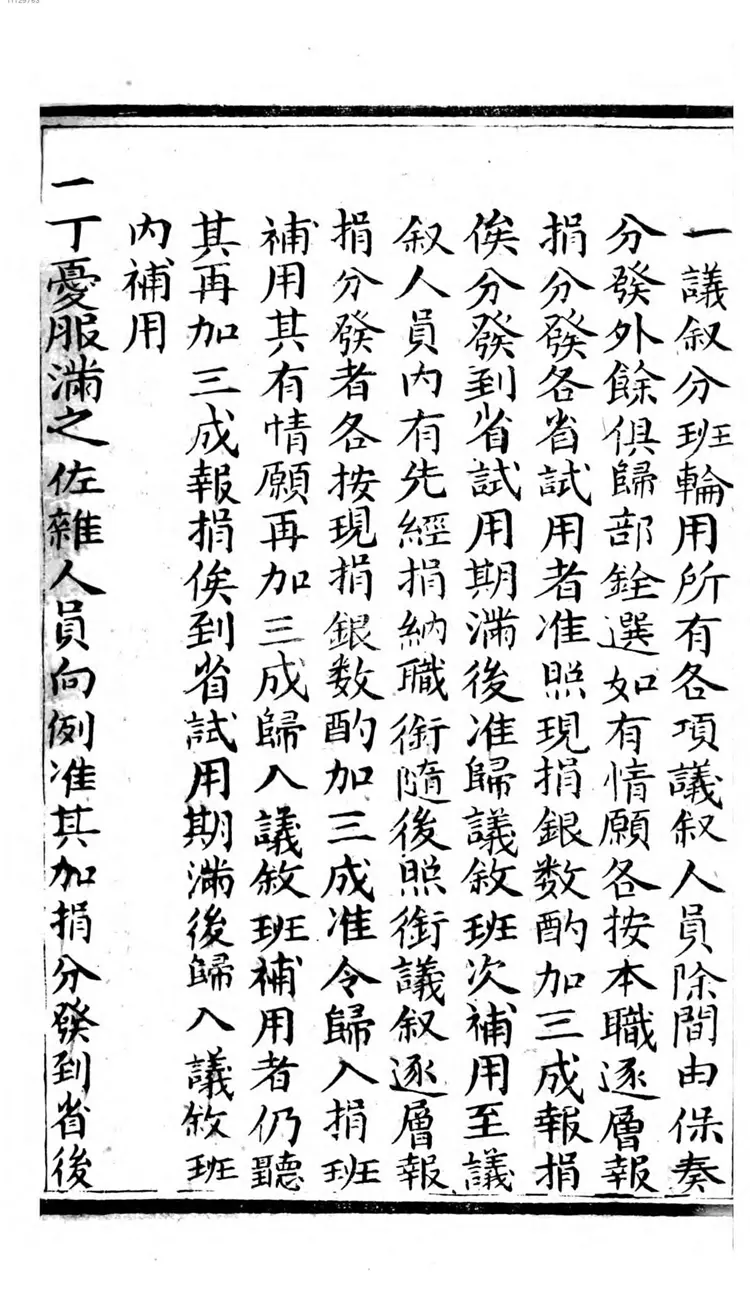 一議叙分班輪用所有各項議叙人員除間由保奏
分發外餘俱歸部銓選如有情願各按本職逐層報
捐分發各省試用者准照現捐銀数酌加三成報捐
俟分發到省試用期滿後准歸議敘班次補用至議
叙人員内有先經捐納職銜隨後照銜議叙逐層報
捐分發者各按現捐銀数酌加三成准令歸入捐班
補用其有情願再加三成歸入議敘班補用者仍聽
其再加三成報捐俟到省試用期滿後歸入議敘班
内補用
一丁憂服滿之佐雜人員向例准其加捐分發到省後